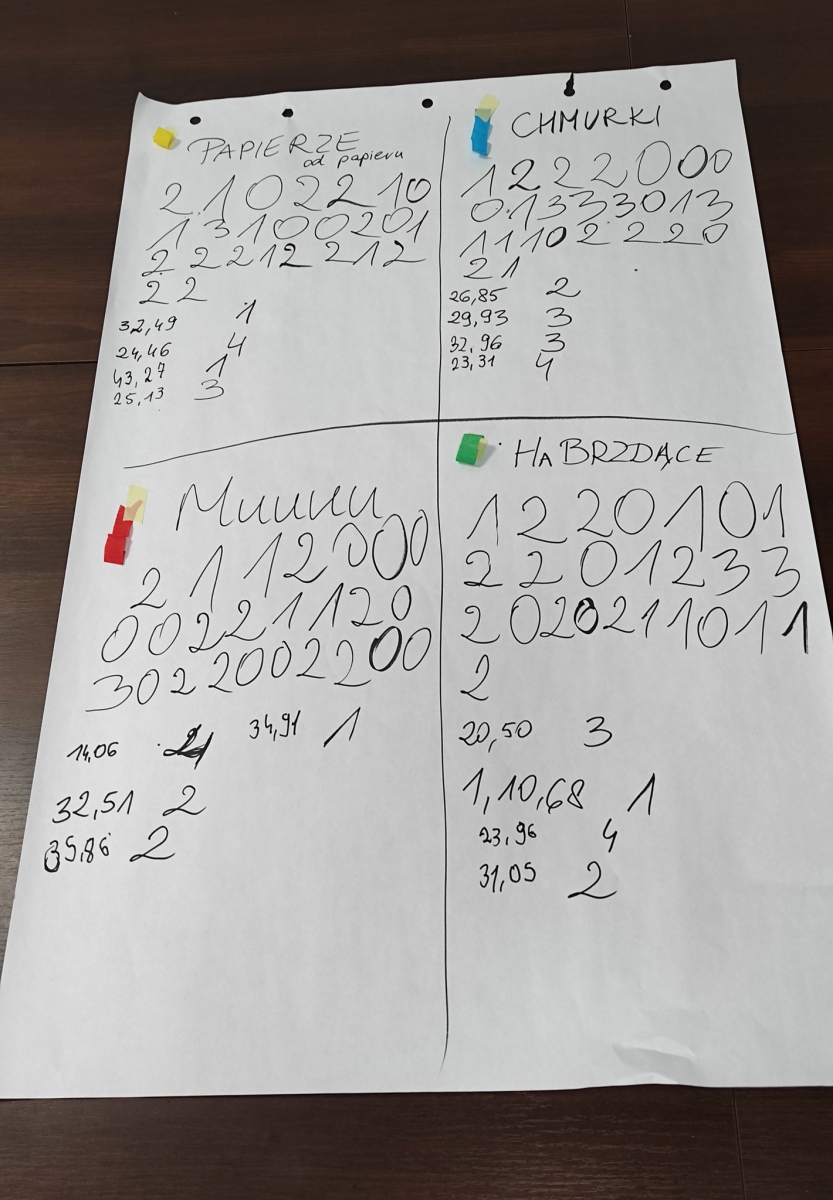 PAPIERZE
od papieru
2 1 0 2 2 1 0
1 3 1 0 0 2 0 1
2 2 2 1 2 2 1 2
2 2
32,49 1
24,46 4
43,27 1
25,13 3
CHMURKI
1 2 2 2 0 0 0
0 1 3 3 3 0 1 3
1 1 1 0 2 2 2 0
2 1
26,85 2
29,93 3
32,96 3
23,31 4
2 1 1 2 0 0 0
0 0 2 2 1 1 2 0
3 0 2 2 0 0 2 2 0 0
14,06
34,91 1
32,51 2
35,86 2
HABRZDĄCE
1 2 2 0 1 0 1
2 2 0 1 2 3 3
2 0 2 0 2 1 1 0 1 1
2
20,50 3
1,10,68 1
23,96 4
31,05 2